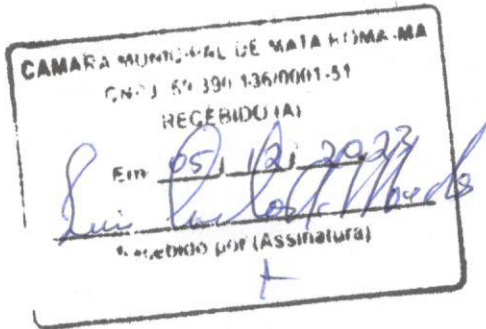 CAMARA MUNICIPAL DE MATA ROMA-MA
CNPJ 69.390.136/0001-51
RECEBIDO (A)
Em 05/12/2023
Recebido por (Assinatura)